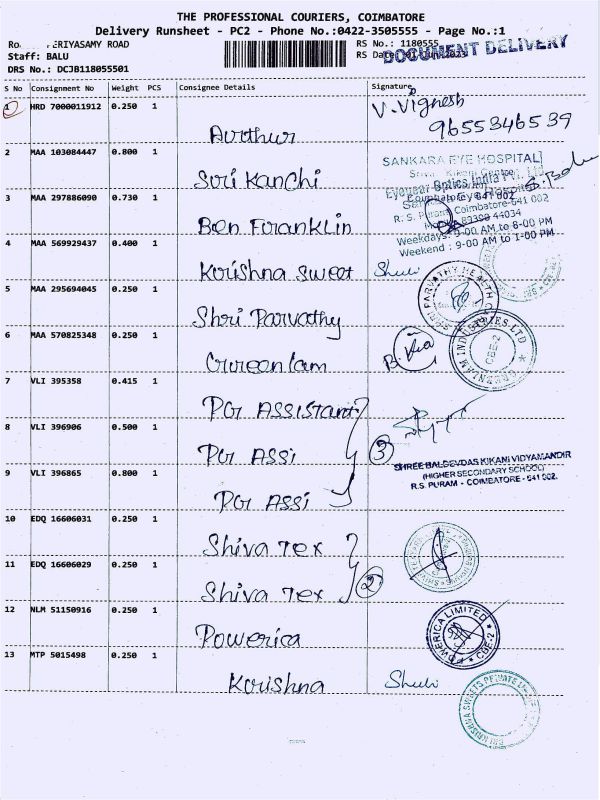 THE PROFESSIONAL COURIERS, COIMBATORE
Delivery Runsheet - PC2 - Phone No.:0422-3505555 - Page No.:1
ERIYASAMY ROAD
RS No.: 1180555
Staff: BALU
RS Date
DOCUMENT DELIVERY
DRS No.: DCJB118055501
S No Consignment No Weight PCS Consignee Details Signature
1 HRD 7000011912 0.250 1
V. Vignesh
9655346539
Aurthur
2 MAA 103084447 0.800 1
SANKARA EYE HOSPITAL
Suri Kanchi
Eyegear Optics India Pvt. Ltd.
3 MAA 297886090 0.730 1
R. S. Puram, Coimbatore-641 002
44034
Ben Franklin
Weekdays: 9:00 AM to 8-00 PM
Weekend : 9-00 AM to 1-00 PM
4 MAA 569929437 0.400 1
Krishna sweet
5 MAA 295694045 0.250 1
Shri Parvathy
SHRI PARVATHY HEALTH
6 MAA 570825348 0.250 1
GREENLAM INDUSTRIES LTD
CBE-2
Greenlam
7 VLI 395358 0.415 1
PGr ASSistant
8 VLI 396906 0.500 1
PGr ASSi
3
SHREE BALDEVDAS KIKANI VIDYAMANDIR
(HIGHER SECONDARY SCHOOL)
R.S. PURAM - COIMBATORE - 641 002.
9 VLI 396865 0.800 1
PGr ASSi
10 EDQ 16606031 0.250 1
Shiva Tex
11 EDQ 16606029 0.250 1
2
Shiva Tex
12 NLM 51150916 0.250 1
POWERICA LIMITED
CBE-2
Powerica
13 MTP 5015498 0.250 1
Krishna
SRI KRISHNA SWEETS PRIVATE